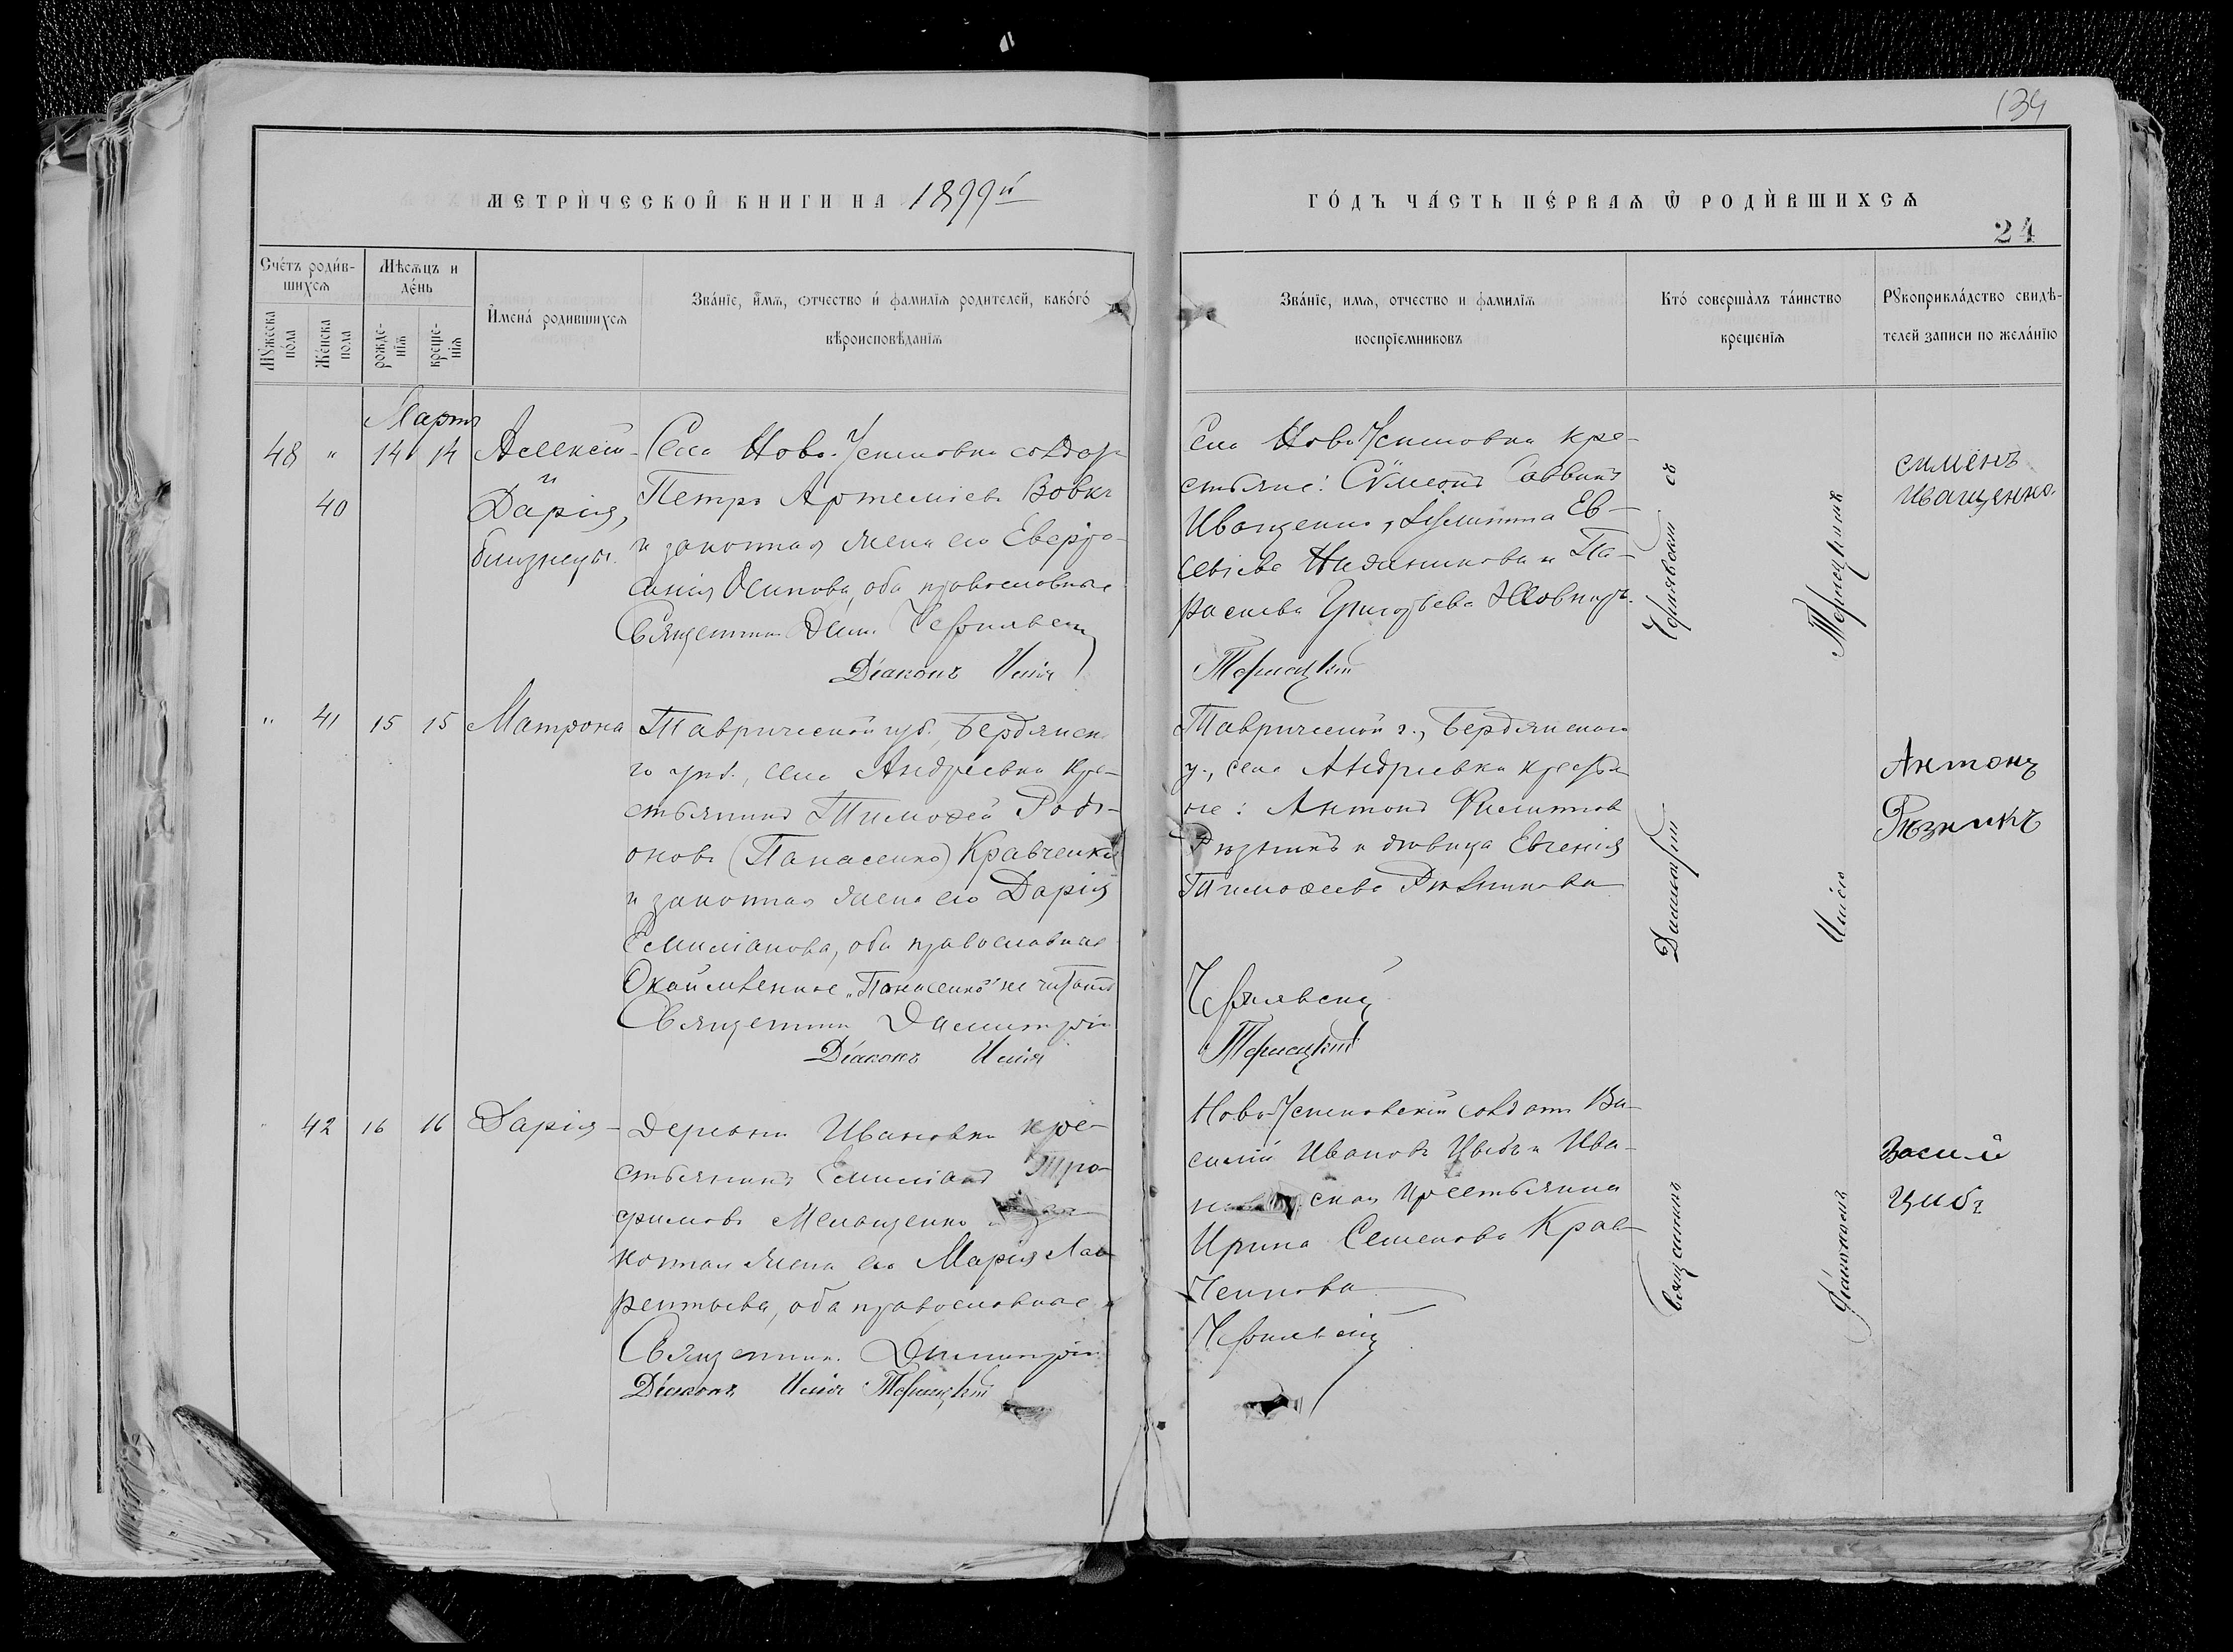 134
МЕТРИ́ЧЕСКОЙ КНИГИ НА 1899й
ГО́ДЪ ЧА́СТЬ ПЕ́РВАѦ Ѽ РОДИ́ВШИХСѦ
24
Сче́тъ роди́в-
шихсѧ
Мѣсѧцъ и
де́нь
Мꙋжеска
по́ла
Же́нска
пола
рожде-
нїѧ
креще-
нїѧ
И҆мена́ родившихсѧ
Зва́нїе, и҆́мѧ, ѻтчество и҆ фамилїѧ родителей, како́гѡ
вѣроисповѣданїѧ
Зва́нїе, имѧ, отчество и фамилїѧ
воспрїемниковъ
Кто́ соверша́лъ та́инство
крещенїѧ
Рꙋкоприкла́дство свидѣ-
телей записи по жела́нїю
Мартъ
48 " 14 14 Алексій
и
40 Дарія,
близнецы.
Села Ново-Успеновки солдатъ
Петръ Артеміевъ Вовкъ
и законная жена его Евпра-
ксія Осипова, оба православные
Священникъ Дим. Чернявскій
Діаконъ Илія
Села Ново Успеновки кре-
стьяне: Сѵмеонъ Саввинъ
Иващенко, Ев-
севіева и Па-
раскева Григорьева
Терлецкій
Семёнъ
Иващенко
" 41 15 15 Матрона
Таврической губ., Бердянска-
го уѣз., села Андреевки кре-
стьянинъ Тимоѳей Роді-
оновъ (Панасенко) Кравченко
и законная жена его Дарія
Емиліанова, оба православные
Окаймленное „Панасенко" не читать
Священникъ Димитрій
Діаконъ Илія
Таврической г., Бердянскаго
у., села Андреевки крестья-
не: Антонъ Филиппов
Рѣзникъ и дѣвица Евгенія
Тимоѳеева Рѣзникова
Чернявскій
Терлецкій
Антонъ
Рѣзникъ
42 16 16 Дарія
Деревни Ивановки кре-
стьянинъ Емиліанъ Тро-
фимовъ Мелащенко и за-
конная жена его Марія Лав-
рентьева, оба православные
Священникъ Димитрій
Діаконъ Илія Терлецкій
Ново-Успеновскій солдатъ Ва-
силій Ивановъ Цыбъ и Ива-
ская крестьянка
Ирина Семенова Крав-
ченкова
Чернявскій
Васили
Цибъ
Священникъ
Димитрій
Чернявскій съ
діакономъ
Иліею
Терлецкимъ